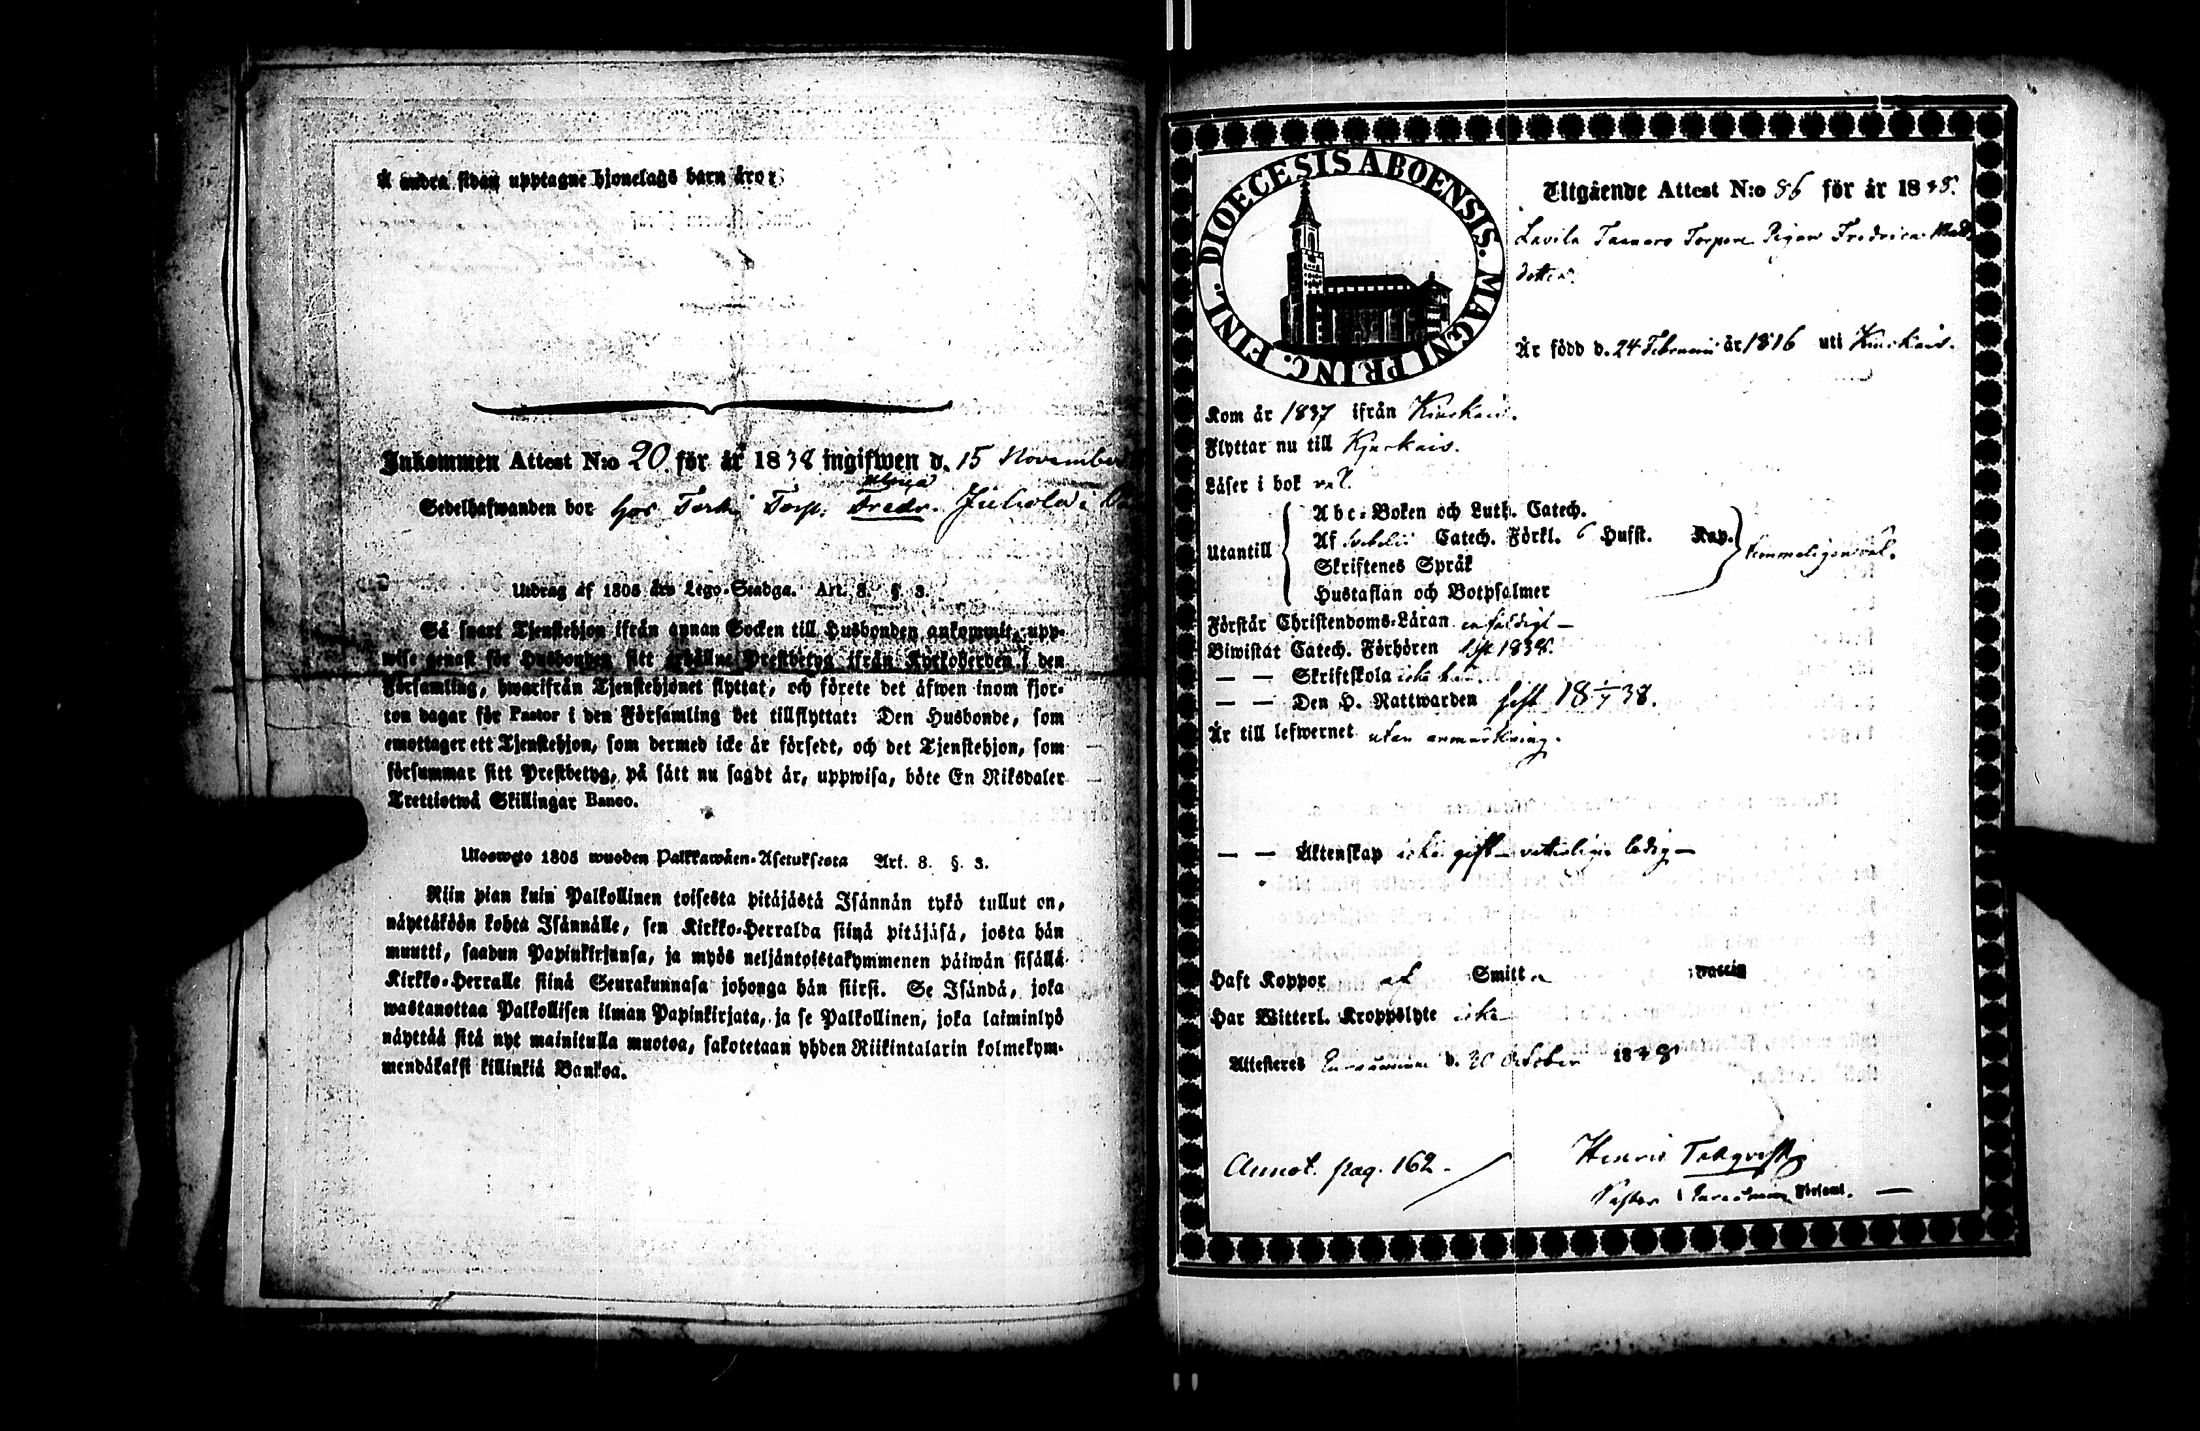 Å andra sidan upptagne hjonelags barn äro:
Inkommen Attest N:o 20 för år 1838 ingifwen d. 15 November
Ulrica
Sedelhafwanden bor hos Torp. Fredr. Juhola i
Utdrag af 1805 års Lego-Stadga. Art. 8. §. 3.
Så snart Tjenstehjon ifrån annan Socken till Husbonden ankommit, upp-
wise genast för Husbonden sitt erhållne Prestbetyg ifrån Kyrkoherden i den
Församling, hwarifrån Tjenstehjonet flyttat, och förete det äfwen inom fjor-
ton dagar för Pastor i den Församling det tillflyttat: Den Husbonde, som
emottager ett Tjenstehjon, som dermed icke är försedt, och det Tjenstehjon, som
försummar sitt Prestbetyg, på sätt nu sagdt är, uppwisa, böte En Riksdaler
Trettiotwå Skillingar Banco.
Ulosweto 1805 wuoden Palkkawäen-Asetuksesta Art. 8. §. 3.
Niin pian kuin Palkollinen toisesta pitäjästä Isännän tykö tullut on,
näyttäköön kohta Isännälle, sen Kirkko-Herralda siinä pitäjäsä, josta hän
muutti, saadun Papinkirjansa, ja myös neljäntoistakymmenen päiwän sisällä
Kirkko-Herralle siinä Seurakunnasa johonga hän siirsi. Se Isändä, joka
wastanottaa Palkollisen ilman Papinkirjata, ja se Palkollinen, joka laiminlyö
näyttää sitä nyt mainitulla muotoa, sakotetaan yhden Riikintalarin kolmekym-
mendäkaksi killinkiä Bankoa.
DIOECESIS ABOENSIS. MAGNI PRINC. FINL.
Utgående Attest N:o 86 för år 1838.
Lavila Tannars Torpare Pigan Fredrica Matts
dotter.
Är född d. 24 Februarii år 1816 uti Kiukais.
Kom år 1837 ifrån Kiukais.
Flyttar nu till Kjukais.
Läser i bok väl.
Utantill
Abc-Boken och Luth. Catech.
Af Svebelii Catech. Förkl. 6 Hufst. Kap.
Skriftenes Språk
Hustaflan och Botpsalmer
temmeligen väl.
Förstår Christendoms-Läran enfäldigt —
Biwistat Catech. Förhören sist 1838.
— — Skriftskola icke här.
— — Den H. Nattwarden sist 18 1/7 38.
Är till lefwernet utan anmärkning.
— — Äktenskap icke gift — veterligen ledig —
Haft Koppor af Smitta
Har Witterl. Kroppslyte icke
Attesteres Euraåminne d. 30 October 1838
Annot. pag. 162.
Henric Tallqvist
Pastor i Euraåminne Församl.